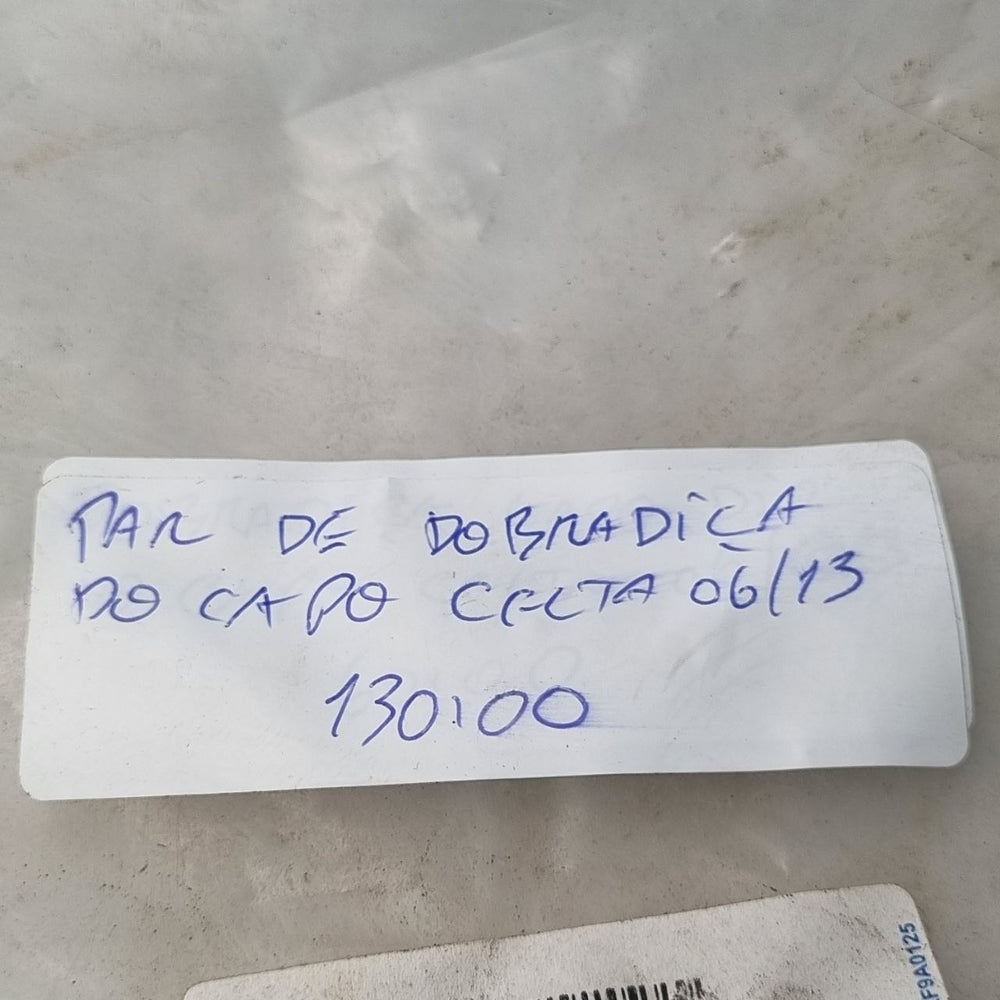 PAR DE DOBRADIÇA
DO CAPO CELTA 06/13
130,00
F9A0125